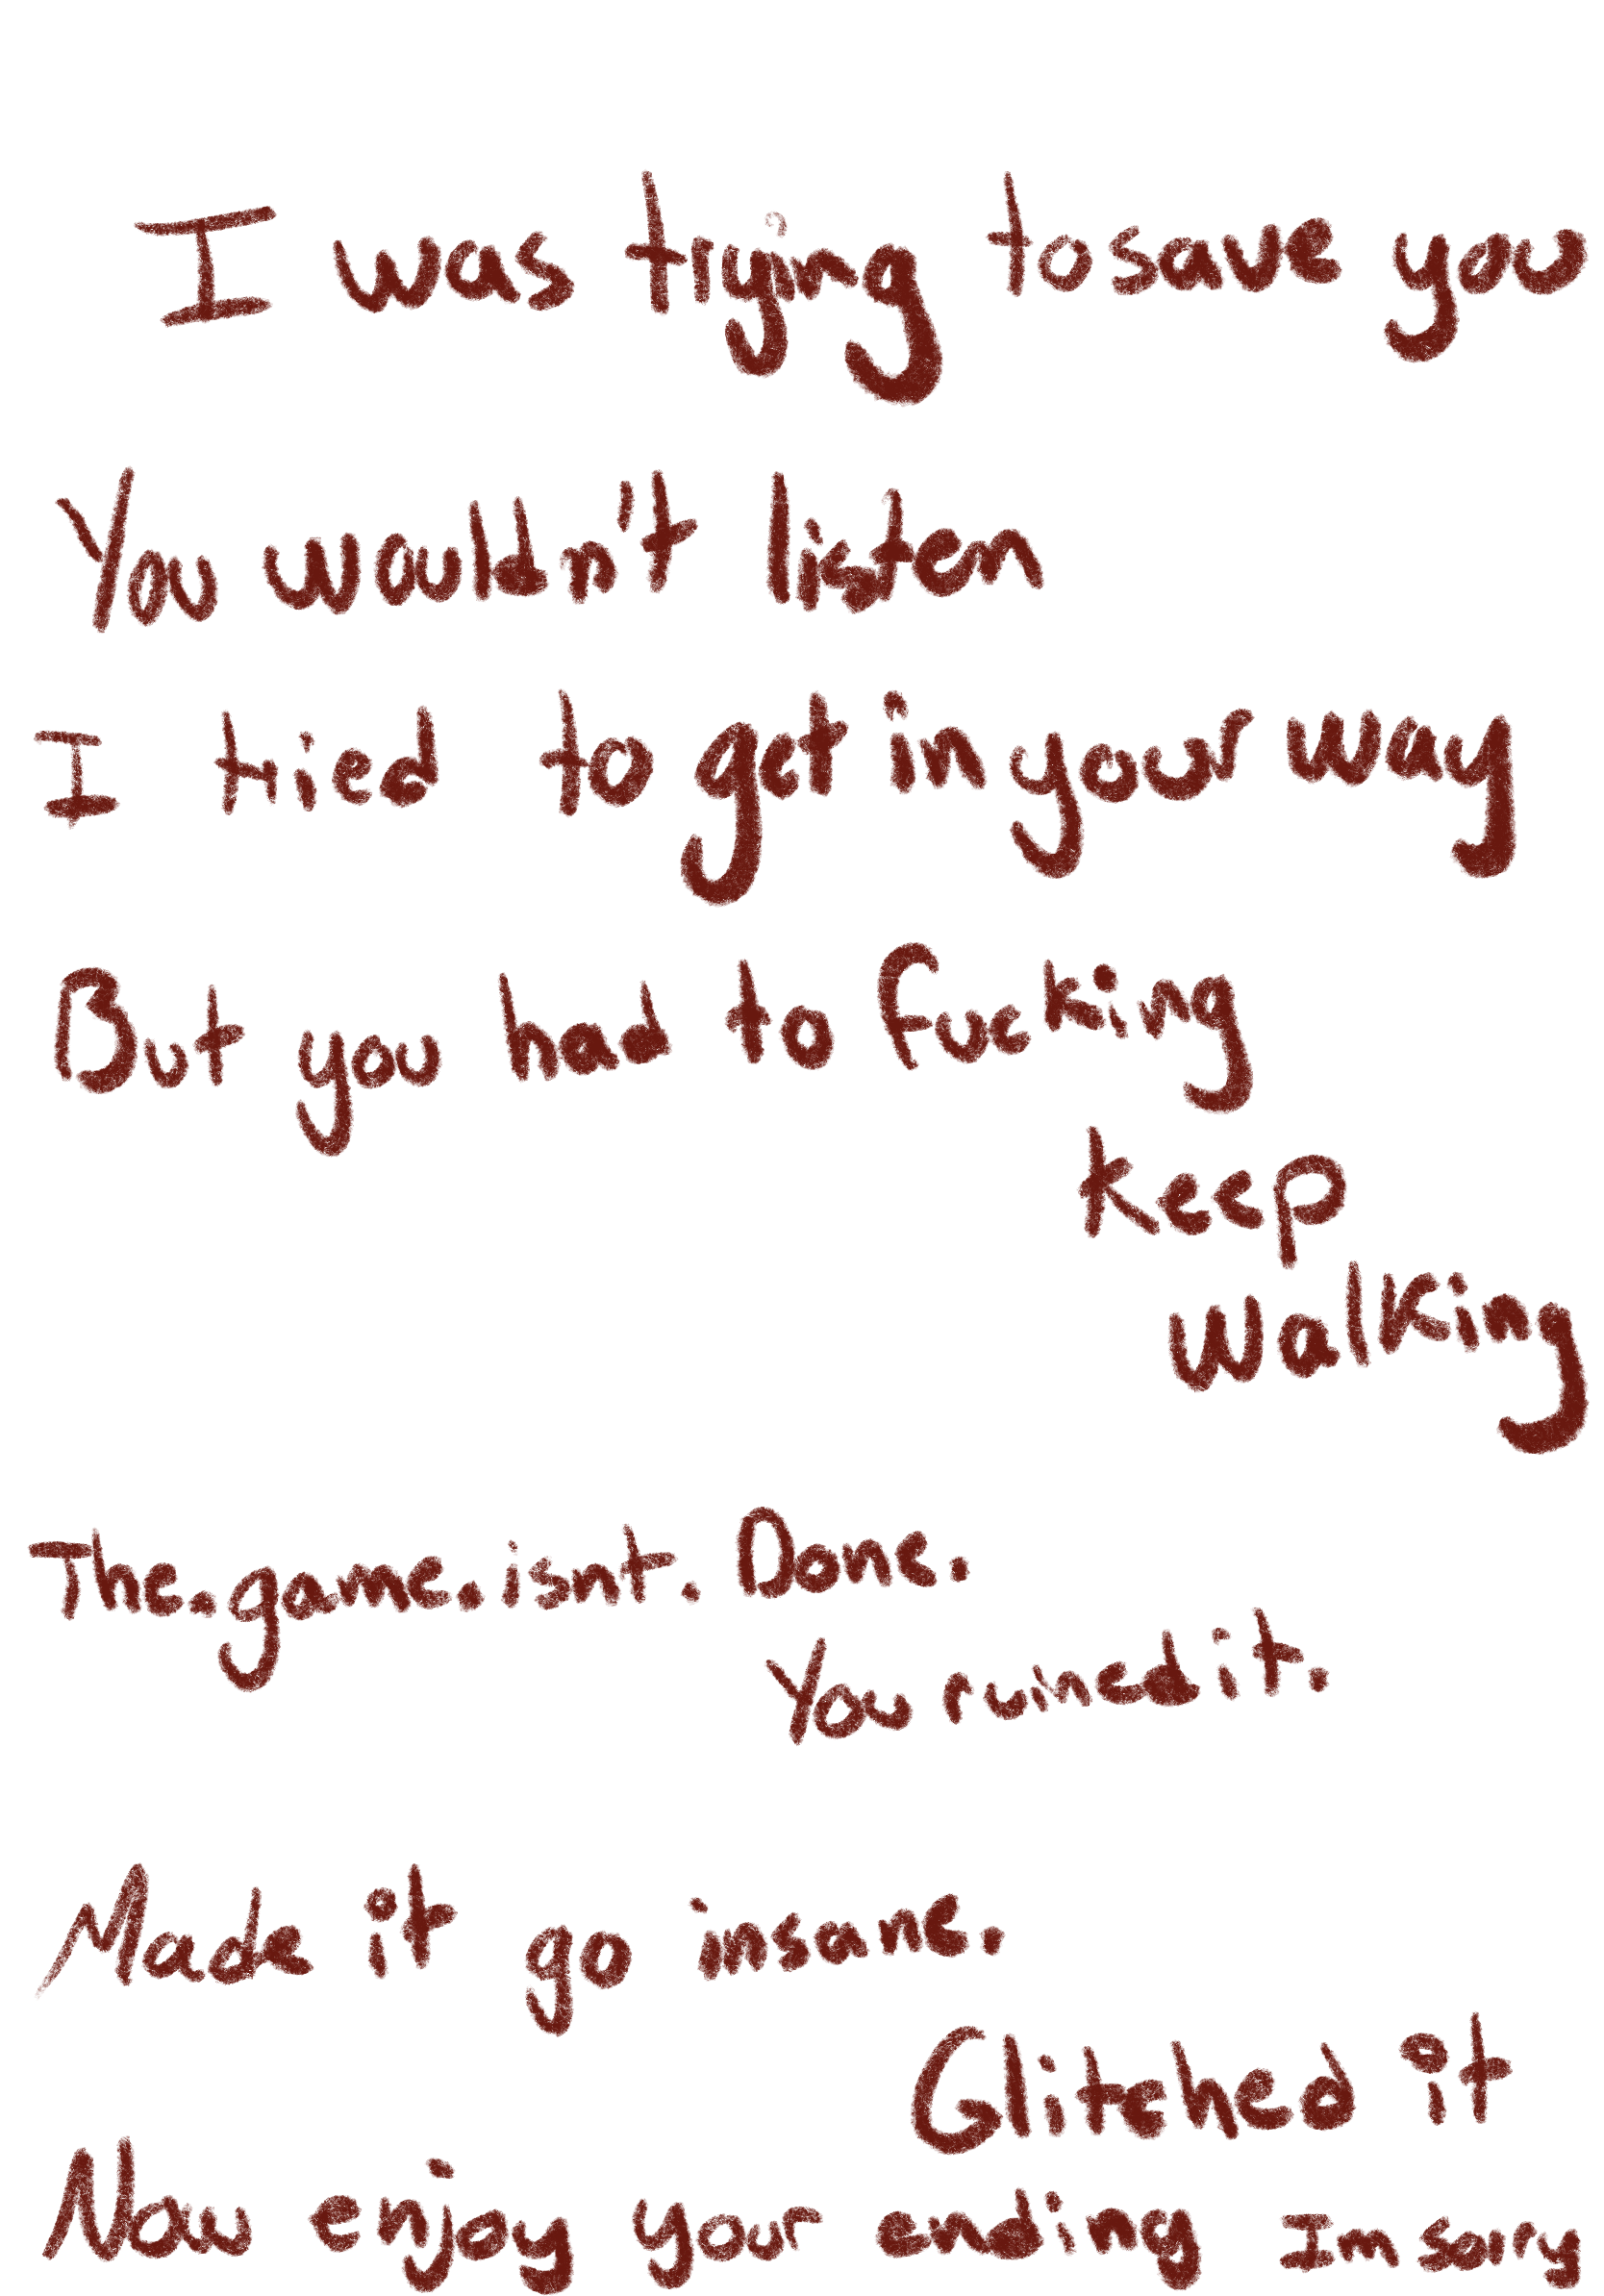 I was trying to save you
You wouldn't listen
I tried to get in your way
But you had to fucking
keep
walking
The.game.isnt.Done.
You ruined it.
Made it go insane.
Glitched it
Now enjoy your ending Im sorry